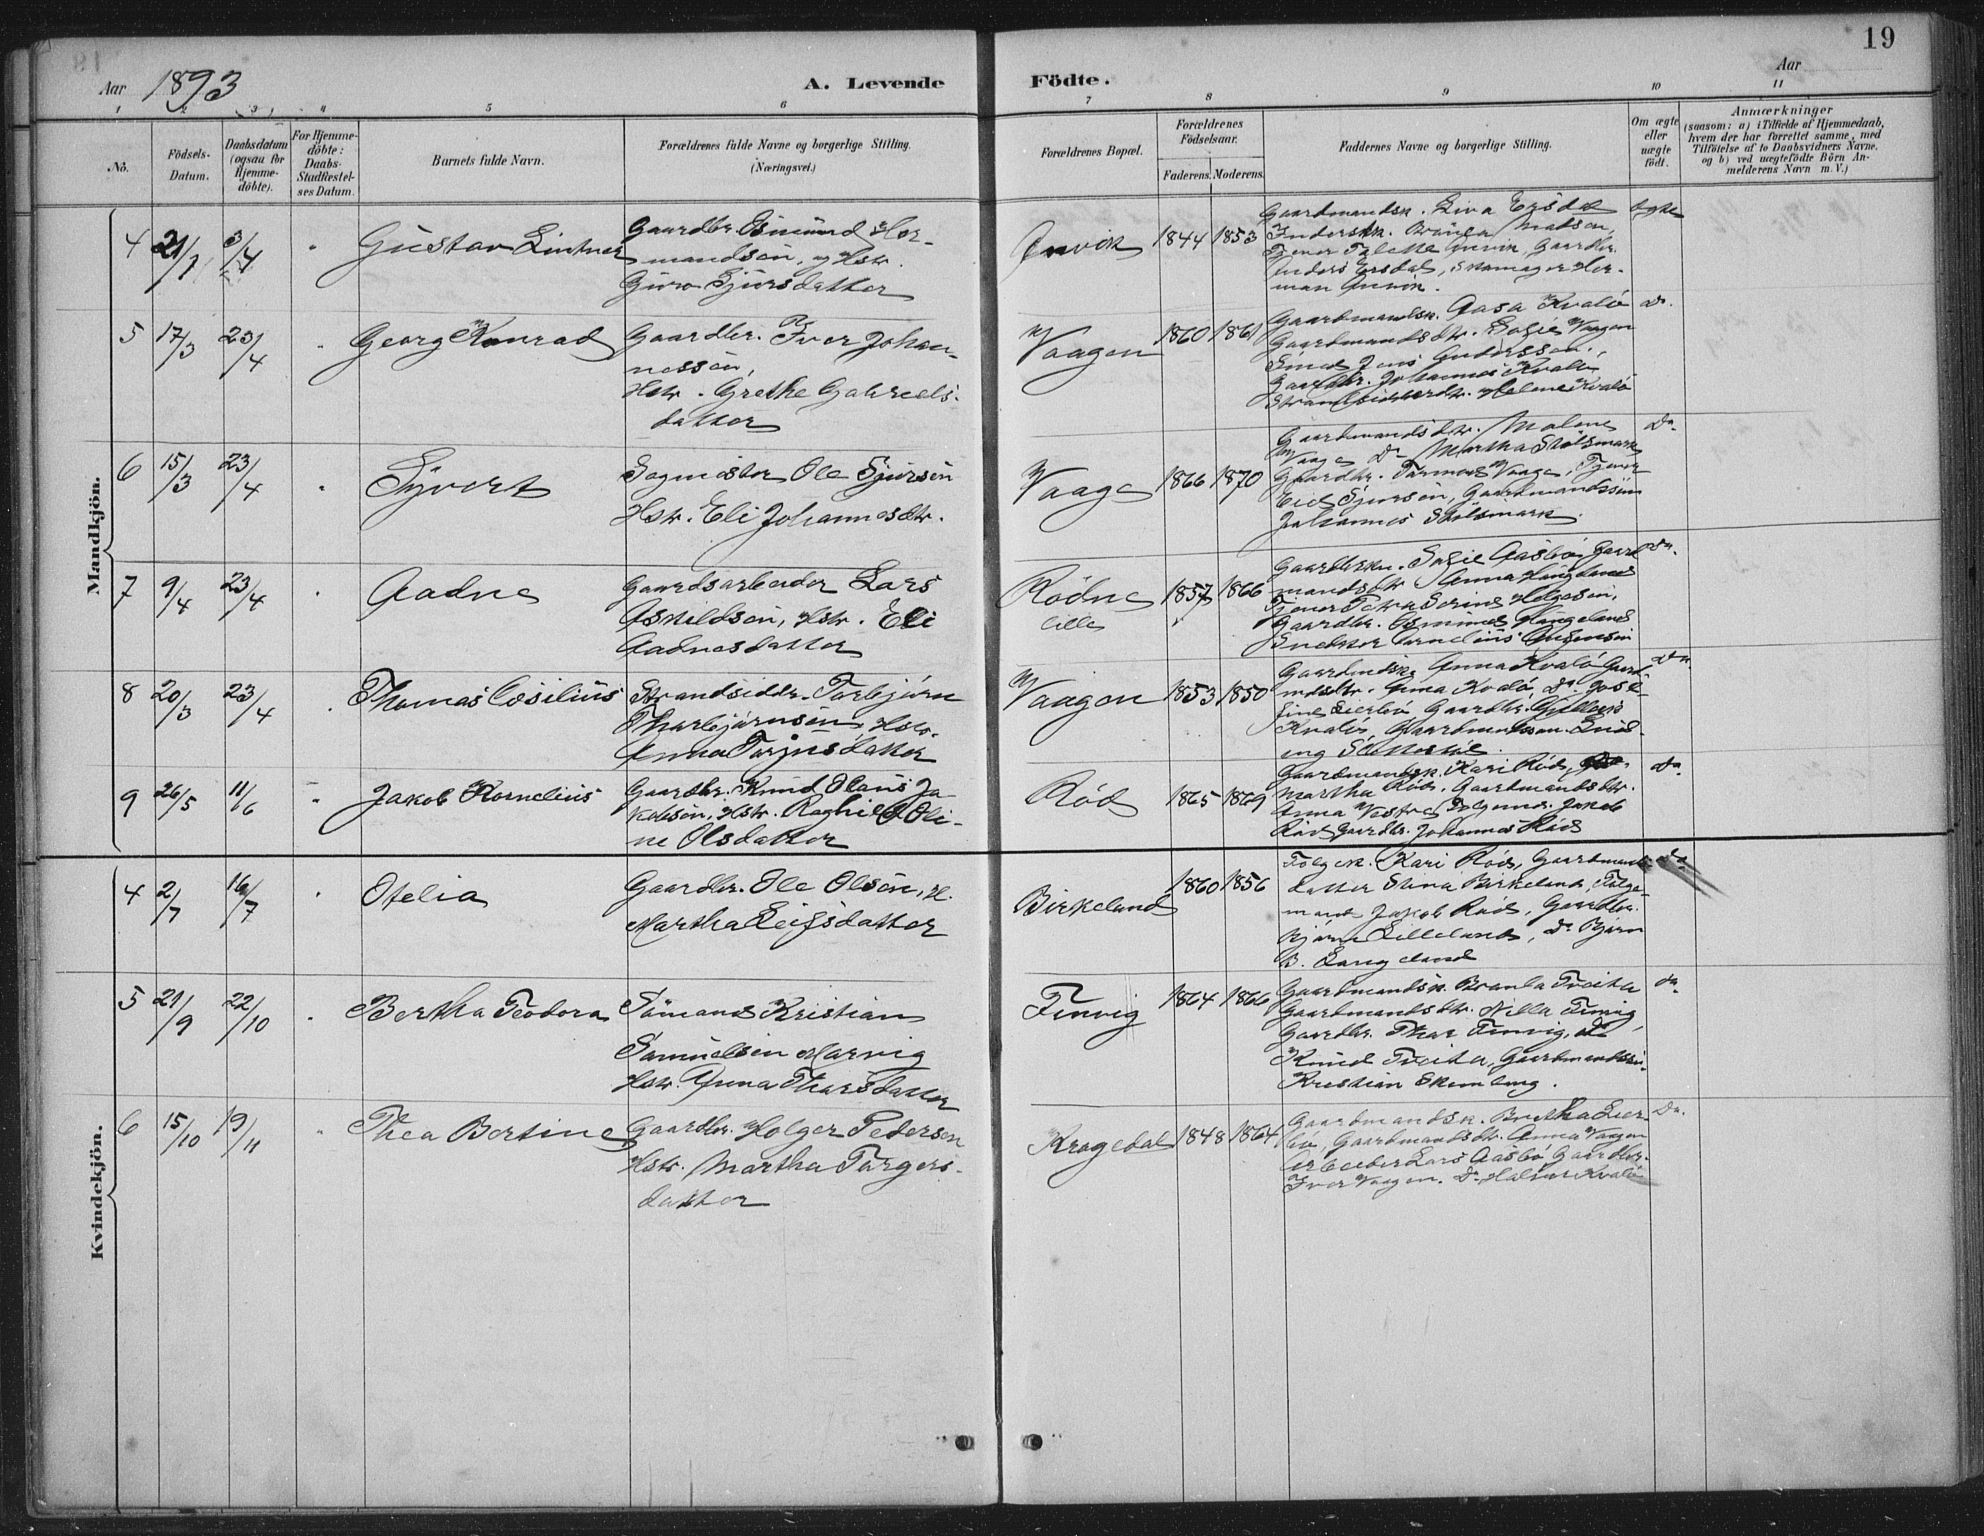 19
Aar 1893 A. Levende Födte. Aar
1 2 3 4 5 6 7 8 9 10 11
No.
Födsels-Datum.
Daabsdatum (ogsaa for Hjemme-döbte).
For Hjemme-döbte: Daabs-Stadfæstel-ses Datum.
Barnets fulde Navn.
Forældrenes fulde Navne og borgerlige Stilling.
(Næringsvei.)
Forældrenes Bopæl.
Forældrenes Födselsaar.
Faderens. Moderens.
Faddernes Navne og borgerlige Stilling.
Om ægte eller uægte födt.
Anmærkninger
(saasom: a) i Tilfælde af Hjemmedaab, hvem der har forrettet samme, med Tilföielse af to Daabsvidners Navne, og b) ved uægtefödte Börn An-melderens Navn m. V.)
Mandkjön.
4 21/1 3/4 " Gustav Lintner
Gaardbr. Osmund Hor-
mandsön, og Hstr.
Guro Sjursdatter
Anvik 1844 1853
Gaardmandsk. Liva Ersdal
Madsen,
Gaardbr.
Anders Ersdal, Skomager Her-
man Anvik.
ægte
5 17/3 23/4 " Georg Konrad
Gaardbr. Iver Johan-
nessön,
Hstr. Grethe Gabreels-
datter
Vaagen 1860 1861
Gaardmandsk. Aasa Kvalö
Gaardmandsdtr. Sofie Vaagen
Smed Jens Anderssen,
Gaardbr. Johannes Kvalö
Strandsidderdtr. Helene Kvalö
Do.
6 15/3 23/4 " Syvert
Sagmester Ole Sjursön
Hstr. Eli Johannesdtr.
Vaage 1866 1870
Gaardmandsdtr. Malene
Vaage Do Martha Stölsmark
Gaardbr. Vaage, Tjener
Sjursön, Gaardmandssön
Johannes Stölsmark
Do.
7 9/4 23/4 " Aadne
Gaardsarbeider Lars
Askildsön, Hstr. Eli
Aadnesdatter
Rödne
lille
1857 1866
Gaardbrkn. Sofie Aasbö, Gaard-
mandsdtr. Anna Haugeland
Tjener Petra Serine Helgesen,
Gaardbr. Osmund Haugeland
Snedker Cornelius
Do.
8 20/3 23/4 " Thomas Cosilius
Strandsiddr. Torbjörn
Thorbjörnsön, Hstr.
Anna Torjusdatter
Vaagen 1853 1850
Gaardmdsk. Anna Kvalö Gaard-
mdsdtr. Anna Kvalö, Do. Jose-
fine Leierbö Gaardbr.
Kvalö, Gaardmandssön
Do.
9 26/5 11/6 " Jakob Kornelius
Gaardbr. Knud Olaus Ja-
kobsön, Hstr. Raghild Oli-
ne Olsdatter
Röd 1865 1869
Gaardmandsk. Kari Röd,
Martha Röd, Gaardmandsdtr.
Anna Vestre Jakob
Röd Gaardbr. Johannes Röd
Do.
Kvindekjön.
4 2/7 16/7 " Otelia
Gaardbr. Ole Olsön, H.
Martha Leifsdatter
Birkeland 1860 1856
Folgek. Kari Röd, Gaardmands-
datter Stina Birkeland, Folge-
mand Jakob Röd, Gaardbr.
Bjørn Lilleland, Do Bjørn
B. Langeland
do
5 21/9 22/10 " Bertha Teodora
Sömand Kristian
Samuelsen Marvig
Hstr. Anna Tharsdatter
Finvig 1864 1866
Gaardmandsk. Tveita
Gaardmandsdtr. Nilla Finvig,
Gaardbr. Thar Finvig, do
Knud Tveita, Gaardmandssön
Kristian
do.
6 15/10 19/11 " Thea Bertine
Gaardbr. Holger Pedersen
Hstr. Martha Torgers-
datter
Kragedal 1848 1864
Gaardmandsk. Bertha Leier-
bö, Gaardmandsdtr. Anna Vaagen
Arbeider Lars Aasbö Gaardbr.
Iver Vaagen. Do Halvor Kvalö
Do.